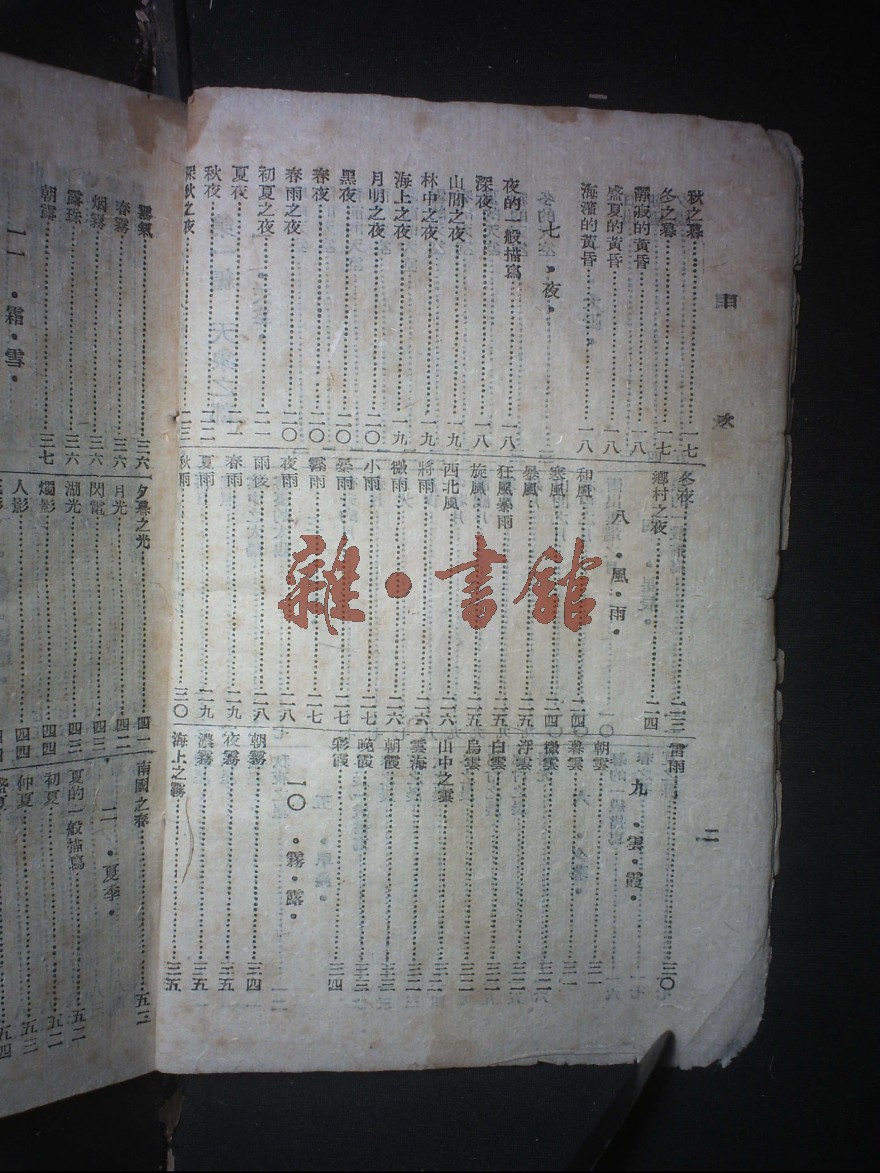 目次
二
秋之暮 一七
冬之暮 一七
靜寂的黃昏 一八
盛夏的黃昏 一八
海濱的黃昏 一八
七・夜・
夜的一般描寫 一八
深夜 一八
山間之夜 一九
林中之夜 一九
海上之夜 一九
月明之夜 二〇
黑夜 二〇
春夜 二〇
春雨之夜 二〇
初夏之夜 二一
夏夜 二一
秋夜 二二
深秋之夜 二三
冬夜 二三
鄉村之夜 二四
八・風・雨・
和風 二四
寒風 二四
暴風 二五
狂風暴雨 二五
旋風 二五
西北風 二六
將雨 二六
微雨 二六
小雨 二七
暴雨 二七
霪雨 二七
夜雨 二八
雨後 二八
春雨 二九
夏雨 二九
秋雨 三〇
雷雨 三〇
九・雲・霞・
朝雲 三一
暮雲 三一
微雲
浮雲 三二
白雲 三二
烏雲 三二
山中之雲
雲海 三三
朝霞 三三
晚霞 三三
彩霞 三四
一〇・霧・露・
朝霧 三四
夜霧 三五
濃霧 三五
海上之霧 三五
霧氣 三六
春霧 三六
烟霧 三六
露珠 三六
朝露 三七
一一・霜・雪・
夕暮之光 四二
月光 四二
閃電 四三
湖光 四三
燭影 四四
人影 四四
南國之春
二・夏季・
夏的一般描寫 五二
初夏 五二
仲夏 五三
盛夏 五四
雜・書館